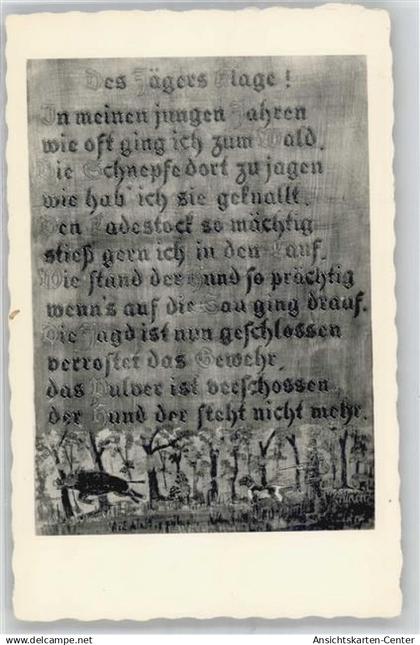 Des Jägers Klage !
In meinen jungen Jahren
wie oft ging ich zum Wald.
Die Schnepfe dort zu jagen
wie hab' ich sie geknallt.
Den Ladestock so mächtig
stieß gern ich in den Lauf.
Wie stand der Hund so prächtig
wenn's auf die Sau ging drauf.
Die Jagd ist nun geschlossen
verrostet das Gewehr.
das Pulver ist verschossen
der Hund der steht nicht mehr.
Ansichtskarten-Center